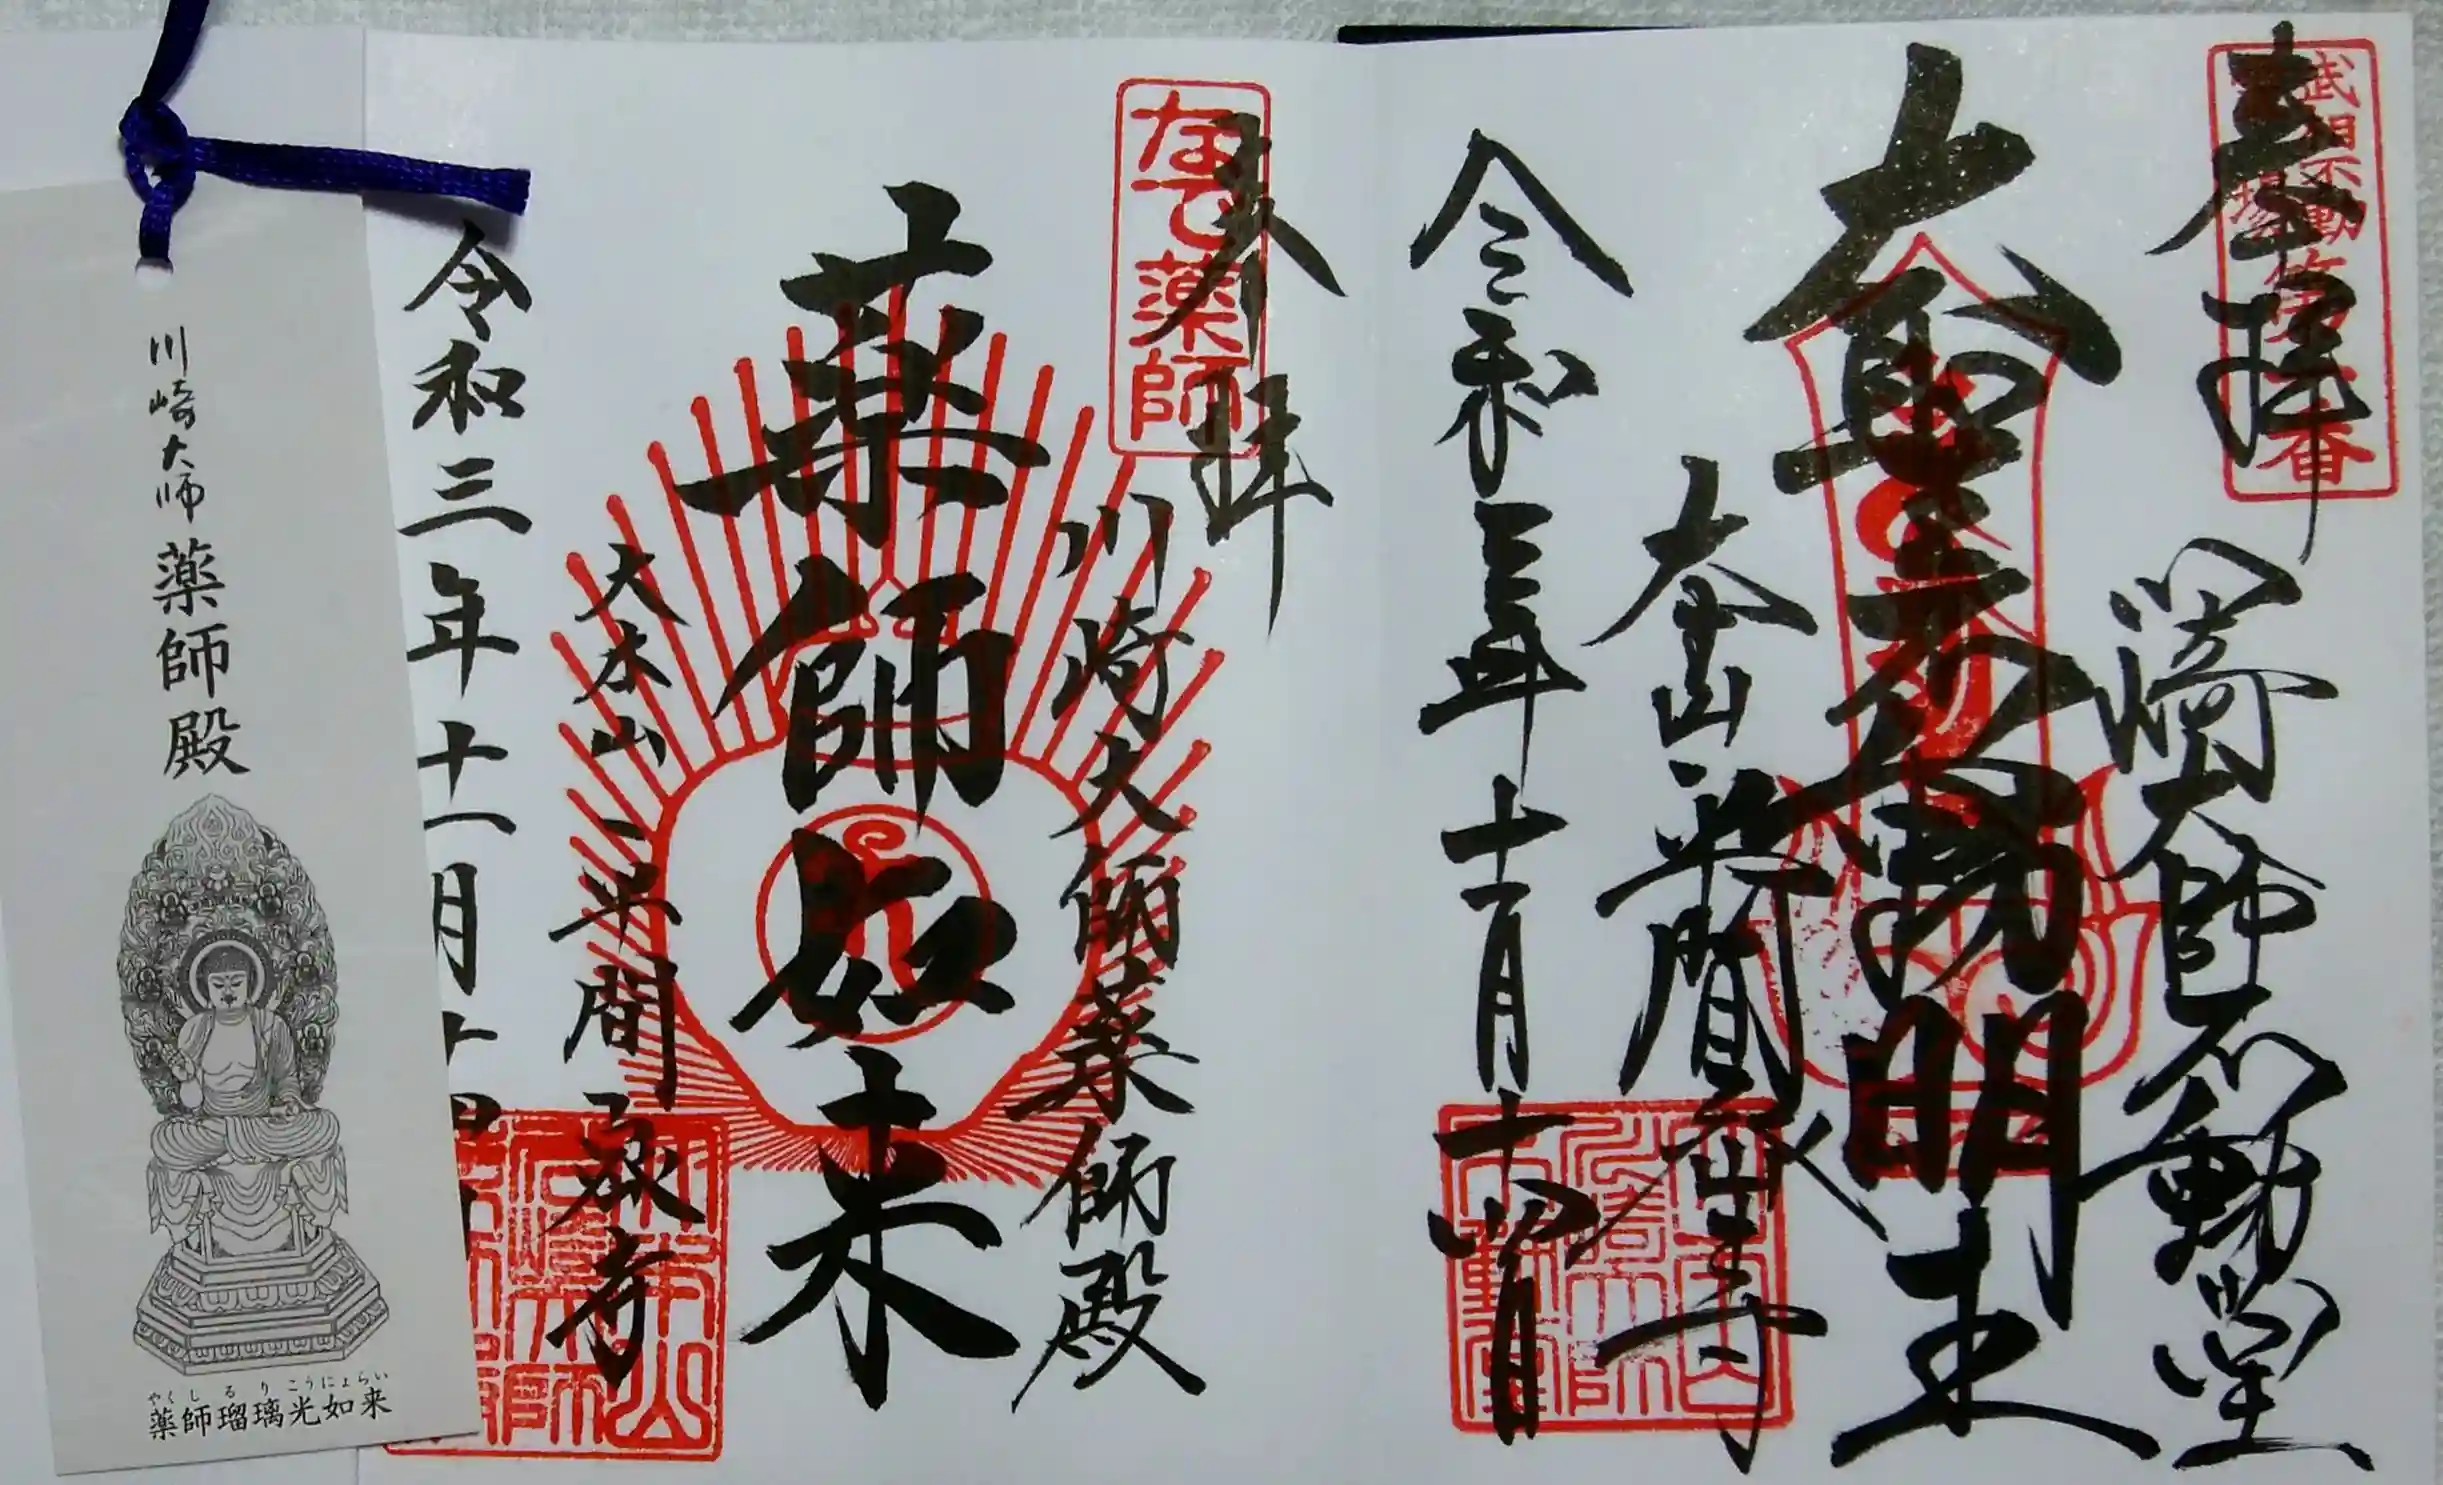 奉拝
武相不動
川崎大師不動堂
大聖不動明王
大本山平間寺
令和三年十一月十四日
奉拝
なで薬師
川崎大師薬師殿
薬師如来
大本山平間寺
令和三年十一月十四
川崎大師薬師殿
やくしるりこうにょらい
薬師瑠璃光如来